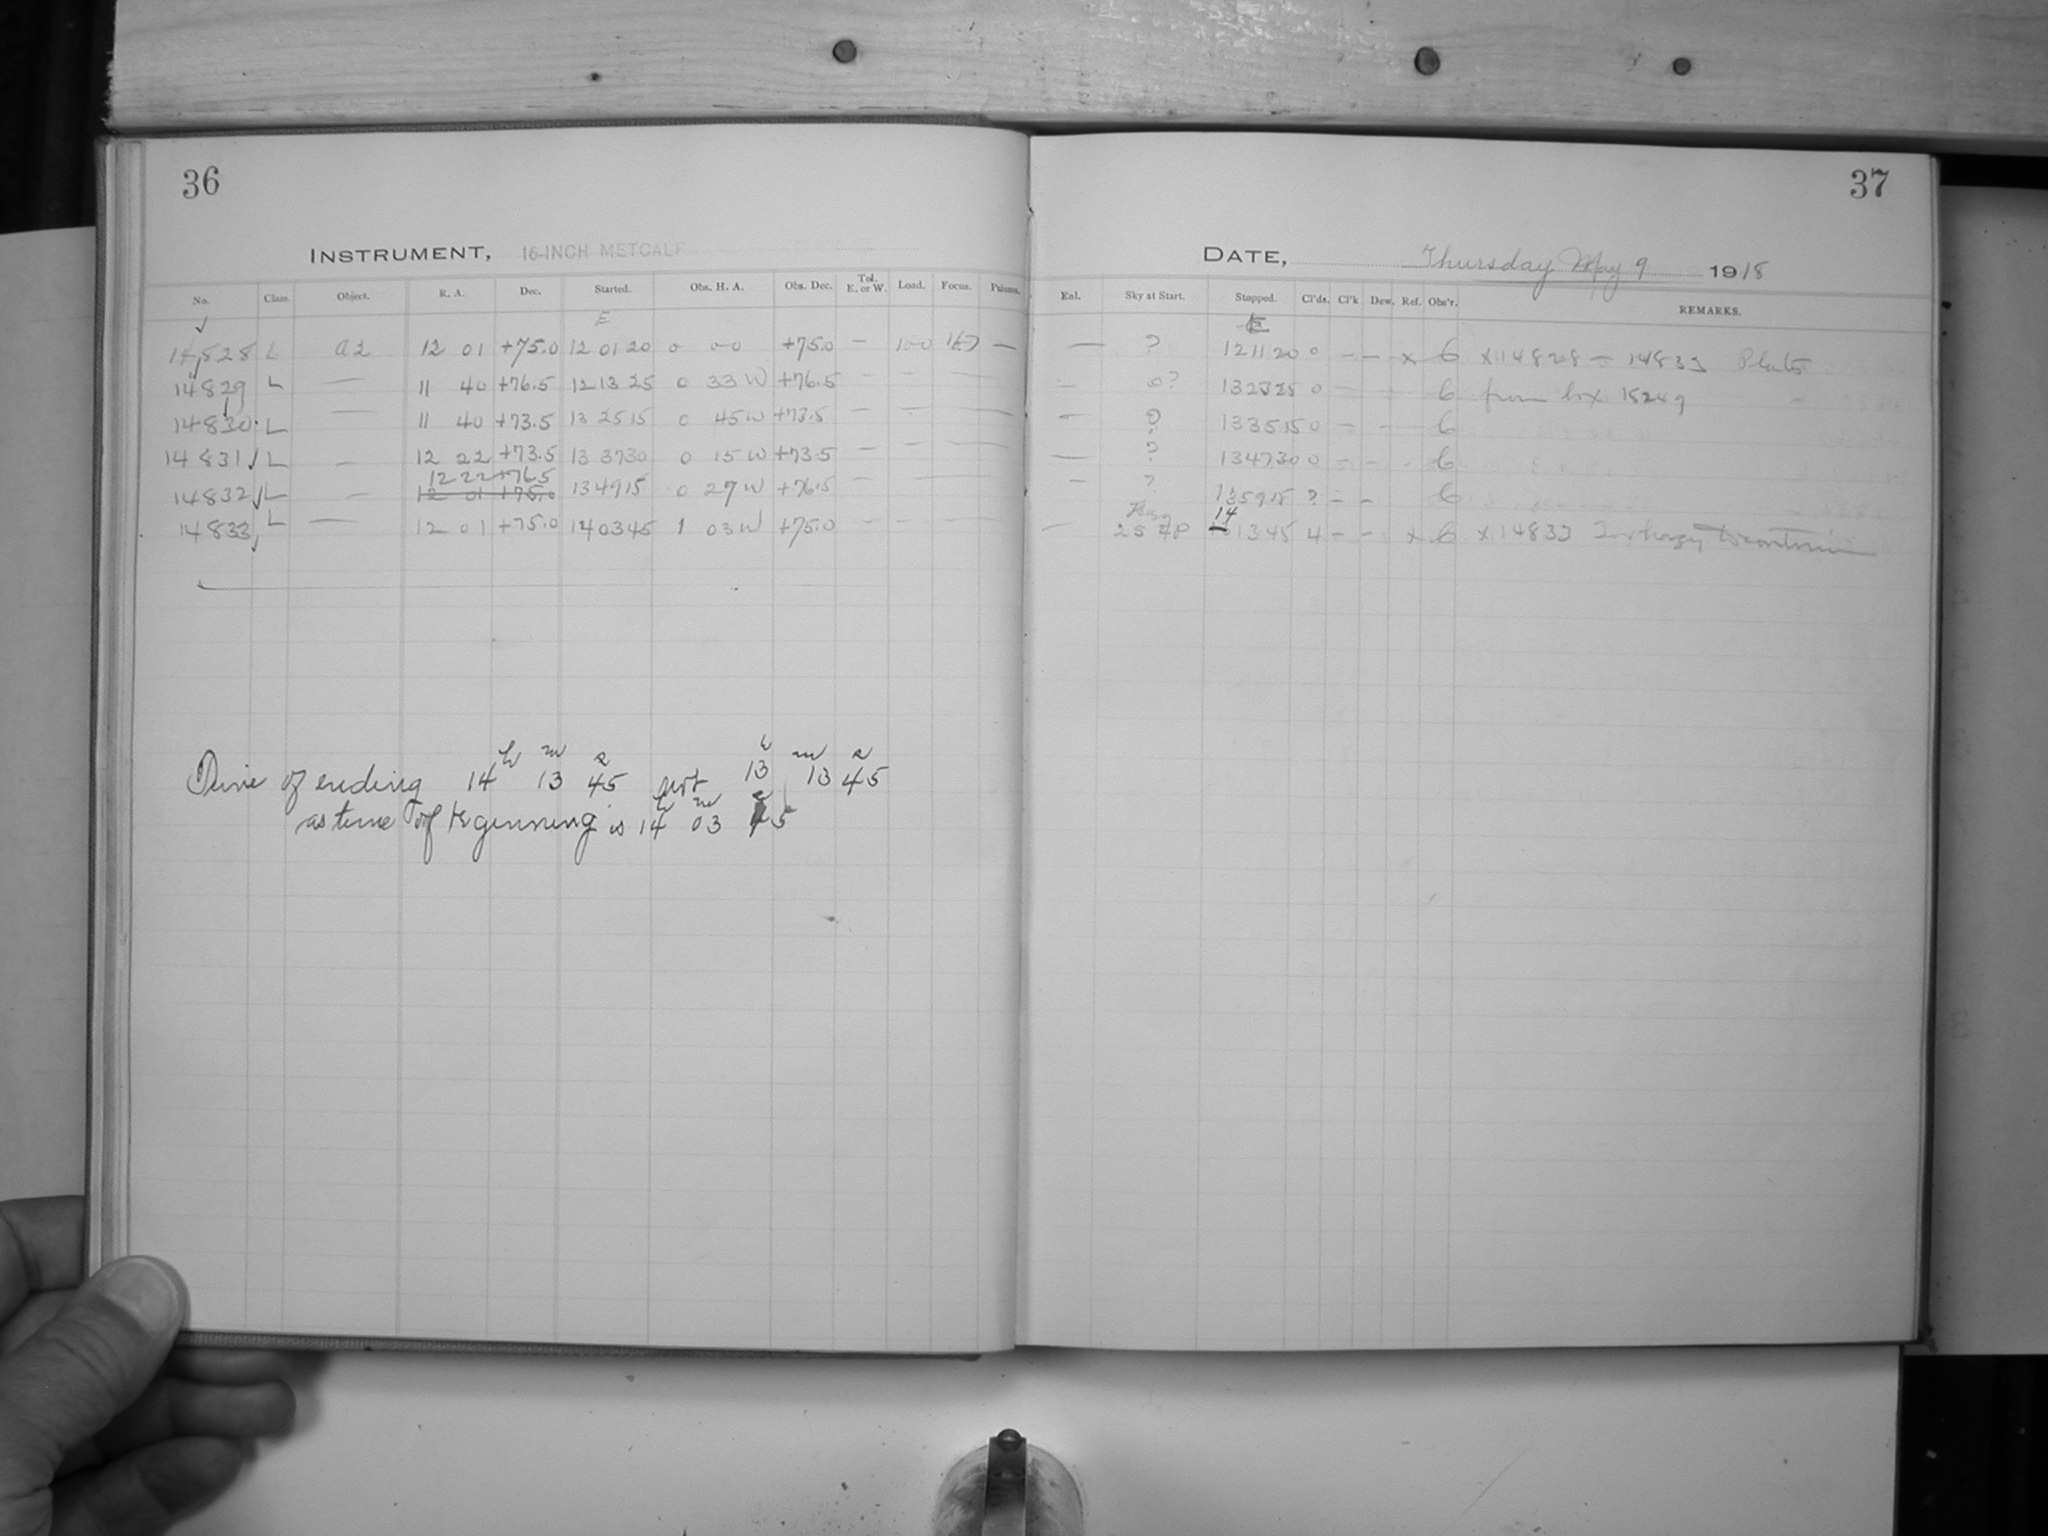 36
INSTRUMENT, 16-INCH METCALF
No. Class. Object. R. A. Dec. Started. Obs. H. A. Obs. Dec. Tel. E. or W. Load. Focus. Prisms.
E
14828 L a2 12 01 +75.0 12 01 20 0 00 +75.0 — 100 —
14829 L — 11 40 +76.5 12 13 25 0 33 W +76.5 — — — —
14830 L — 11 40 +73.5 13 25 15 0 45 W +73.5 — — — —
14831 L — 12 22 +73.5 13 37 30 0 15 W +73.5 — — — —
12 22 +76.5
14832 L — 12 01 +75.0 13 49 15 0 27 W +76.5 — — — —
14833 L — 12 01 +75.0 14 03 45 1 03 W +75.0 — — — —
Time of ending 14h 13m 45s not 13h 13m 45s
as time of beginning is 14h 03m 45s
37
DATE, Thursday May 9 1918
Enl. Sky at Start. Stopped. Cl'ds. Cl'k Dew. Ref. Obs'r. REMARKS.
E
— ? 12 11 20 0 — — x 6 x 14828 — 14833 Plates
— 0? 13 23 25 0 — — 6 from box 18249
— ? 13 35 15 0 — — 6
— ? 13 47 30 0 — — 6
— ? 13 59 15 ? — — 6
Hazy 14
— 25 4P 13 45 4 — — x 6 x 14833 Too hazy to continue